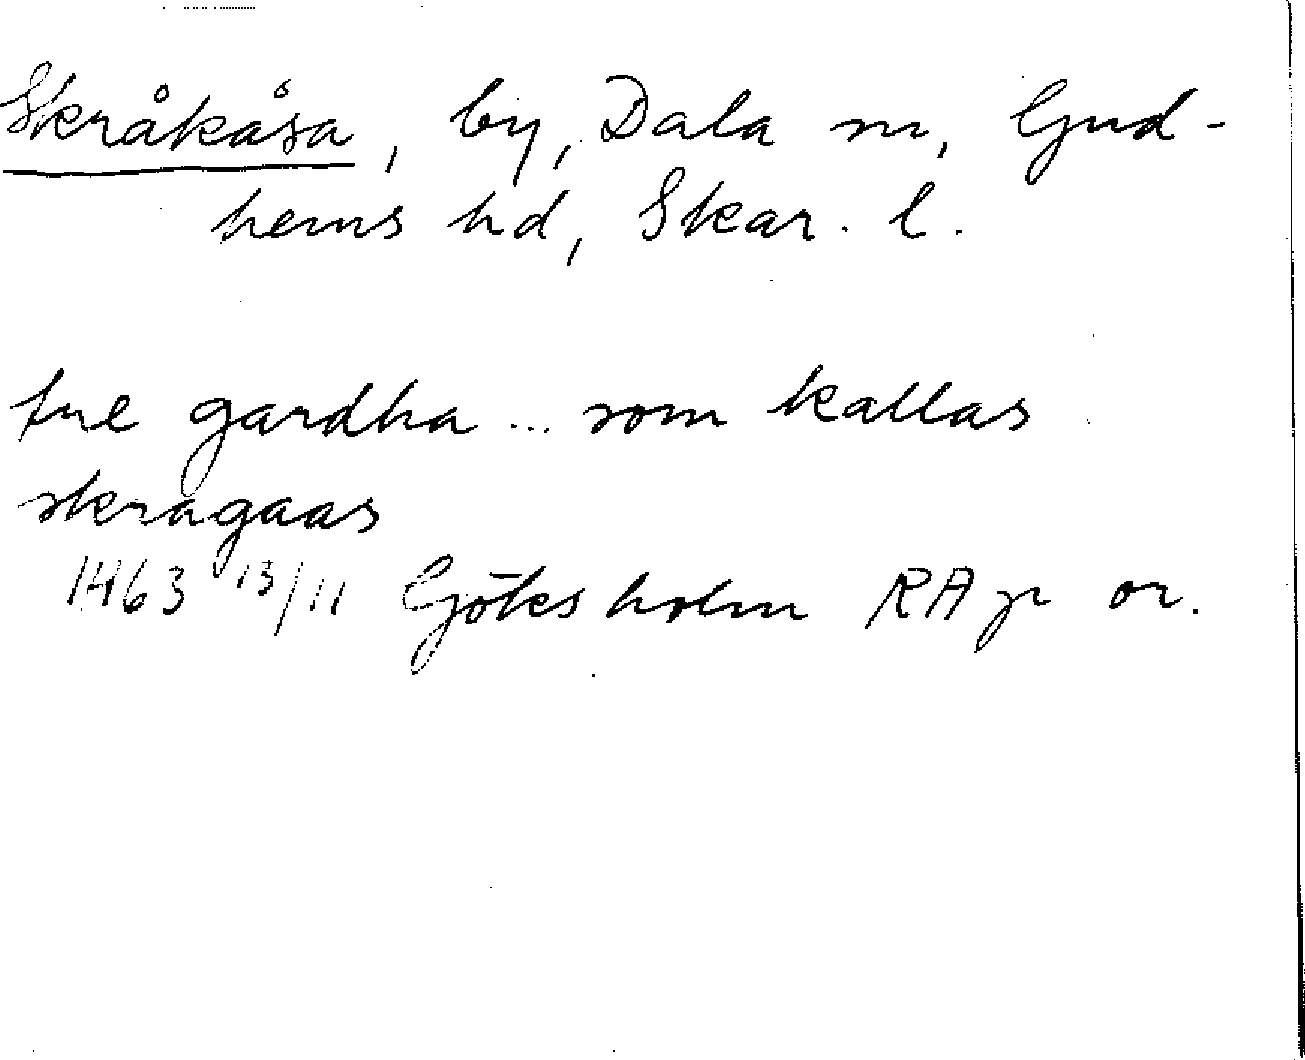 Skråkåsa, by, Dala sn, Gud-
hems hd, Skar. l.
tre gardha ... som kallas
skragaas
1463 13/11 Göksholm RAp or.